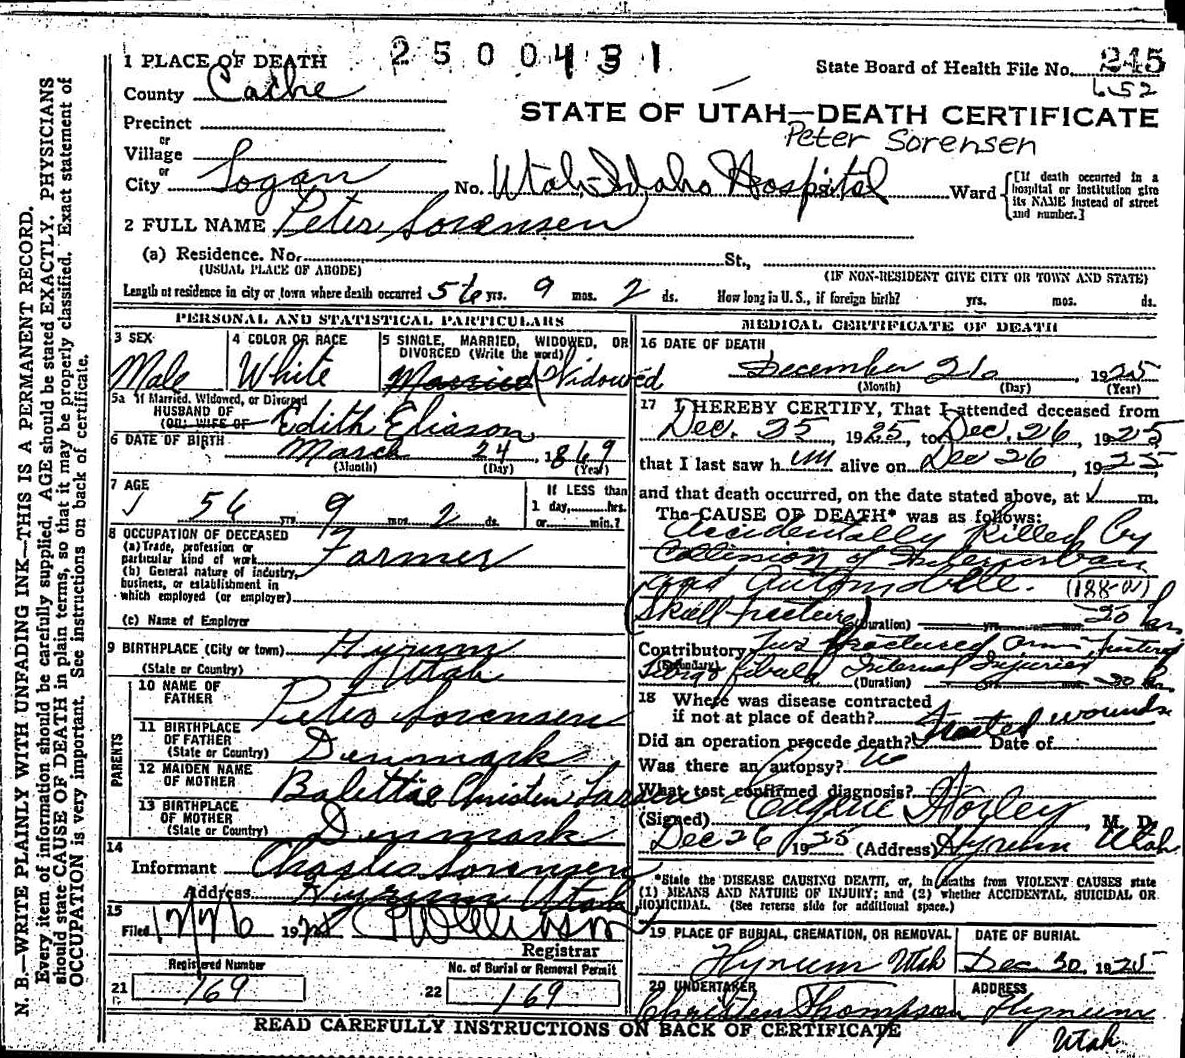 2500431
1 PLACE OF DEATH
State Board of Health File No. 245
County Cache
652
STATE OF UTAH—DEATH CERTIFICATE
Precinct
Peter Sorensen
or
Village
or
City Logan No. Utah-Idaho Hospital Ward
[If death occurred in a hospital or institution give its NAME instead of street and number.]
2 FULL NAME Peter Sorensen
(a) Residence. No. St.,
(USUAL PLACE OF ABODE) (IF NON-RESIDENT GIVE CITY OR TOWN AND STATE)
Length of residence in city or town where death occurred 56 yrs. 9 mos. 2 ds. How long in U.S., if foreign birth? yrs. mos. ds.
PERSONAL AND STATISTICAL PARTICULARS
3 SEX
Male
4 COLOR OR RACE
White
5 SINGLE, MARRIED, WIDOWED, OR
DIVORCED (Write the word)
Married Widowed
5a If Married, Widowed, or Divorced
HUSBAND OF
(OR) WIFE OF Edith Eliason
6 DATE OF BIRTH March 24, 1869
(Month) (Day) (Year)
7 AGE
56 yrs. 9 mos. 2 ds.
If LESS than
1 day, hrs.
or min.?
8 OCCUPATION OF DECEASED
(a) Trade, profession or
particular kind of work Farmer
(b) General nature of industry,
business, or establishment in
which employed (or employer)
(c) Name of Employer
9 BIRTHPLACE (City or town) Hyrum
(State or Country) Utah
PARENTS
10 NAME OF
FATHER Peter Sorensen
11 BIRTHPLACE
OF FATHER
(State or Country) Denmark
12 MAIDEN NAME
OF MOTHER Christen
13 BIRTHPLACE
OF MOTHER
(State or Country) Denmark
14
Informant Charles Sorensen
Address Hyrum Utah
15
Filed 192
Registrar
Registered Number
21 169
No. of Burial or Removal Permit
22 169
MEDICAL CERTIFICATE OF DEATH
16 DATE OF DEATH
December 26, 1925
(Month) (Day) (Year)
17 I HEREBY CERTIFY, That I attended deceased from
Dec. 25, 1925, to Dec. 26, 1925
that I last saw him alive on Dec 26, 1925
and that death occurred, on the date stated above, at m.
The CAUSE OF DEATH* was as follows:
Accidentally Killed by
Collision of Interurban
and Automobile. (188-)
(Skull fracture) (Duration) yrs. 20 hrs
Contributory fractured Arm, fractured
(Secondary) fibula Internal Injuries (Duration)
18 Where was disease contracted
if not at place of death?
Did an operation precede death? Treated wounds Date of
Was there an autopsy? no
What test confirmed diagnosis?
(Signed) Eugene Worley, M. D.
Dec 26 1925 (Address) Hyrum Utah
*State the DISEASE CAUSING DEATH, or, in deaths from VIOLENT CAUSES state
(1) MEANS AND NATURE OF INJURY; and (2) whether ACCIDENTAL, SUICIDAL OR
HOMICIDAL. (See reverse side for additional space.)
19 PLACE OF BURIAL, CREMATION, OR REMOVAL
Hyrum Utah
DATE OF BURIAL
Dec. 30, 1925
20 UNDERTAKER
Christen Thompson
ADDRESS
Hyrum
Utah
READ CAREFULLY INSTRUCTIONS ON BACK OF CERTIFICATE
N. B.—WRITE PLAINLY WITH UNFADING INK—THIS IS A PERMANENT RECORD.
Every item of information should be carefully supplied. AGE should be stated EXACTLY. PHYSICIANS
should state CAUSE OF DEATH in plain terms, so that it may be properly classified. Exact statement of
OCCUPATION is very important. See instructions on back of certificate.